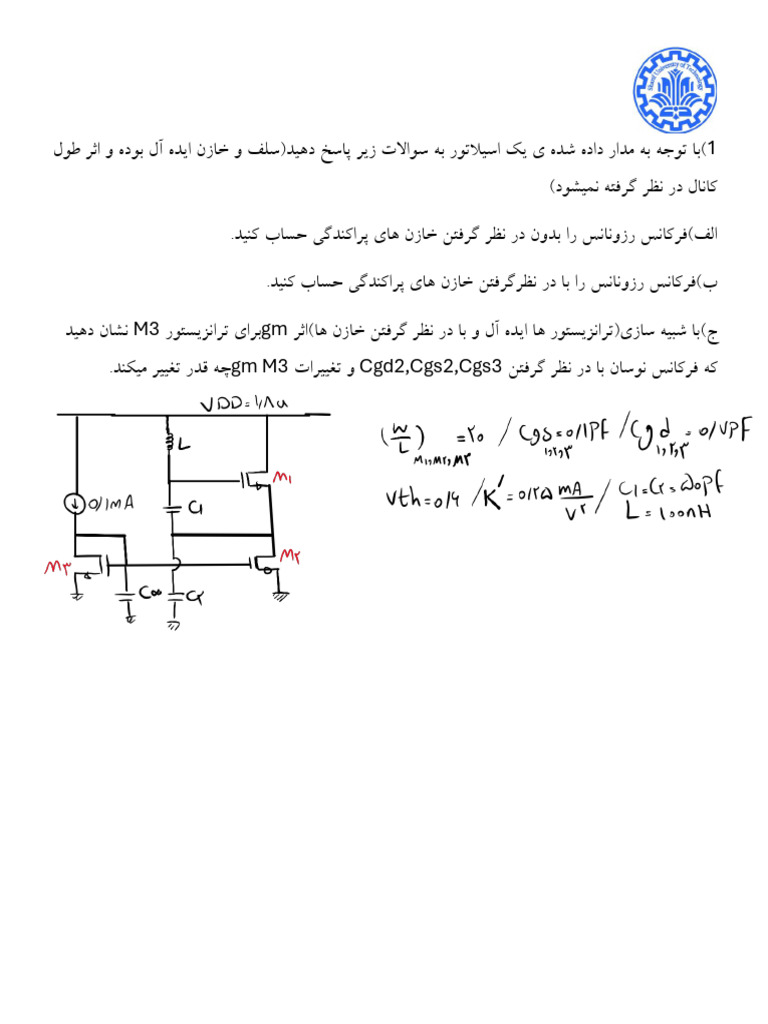 Sharif University of Technology
1)با توجه به مدار داده شده ی یک اسیلاتور به سوالات زیر پاسخ دهید(سلف و خازن ایده آل بوده و اثر طول
کانال در نظر گرفته نمیشود)
الف)فرکانس رزونانس را بدون در نظر گرفتن خازن های پراکندگی حساب کنید.
ب)فرکانس رزونانس را با در نظرگرفتن خازن های پراکندگی حساب کنید.
ج)با شبیه سازی(ترانزیستور ها ایده آل و با در نظر گرفتن خازن ها)اثر gmبرای ترانزیستور M3 نشان دهید
که فرکانس نوسان با در نظر گرفتن Cgd2,Cgs2,Cgs3 و تغییرات gm M3چه قدر تغییر میکند.
VDD=۱/۸
L
M1
C1
0/1mA
M۳
M۲
C∞
C۲
(W/L) M1,M۲,M۳ =۲۰ / Cgs ۱,۲,۳ =0/1PF / Cgd ۱,۲,۳ =0/VPF
Vth=0/۴ / K'=0/۲۵ mA/V² / C1=C۲=۵0PF
L=۱۰۰nH